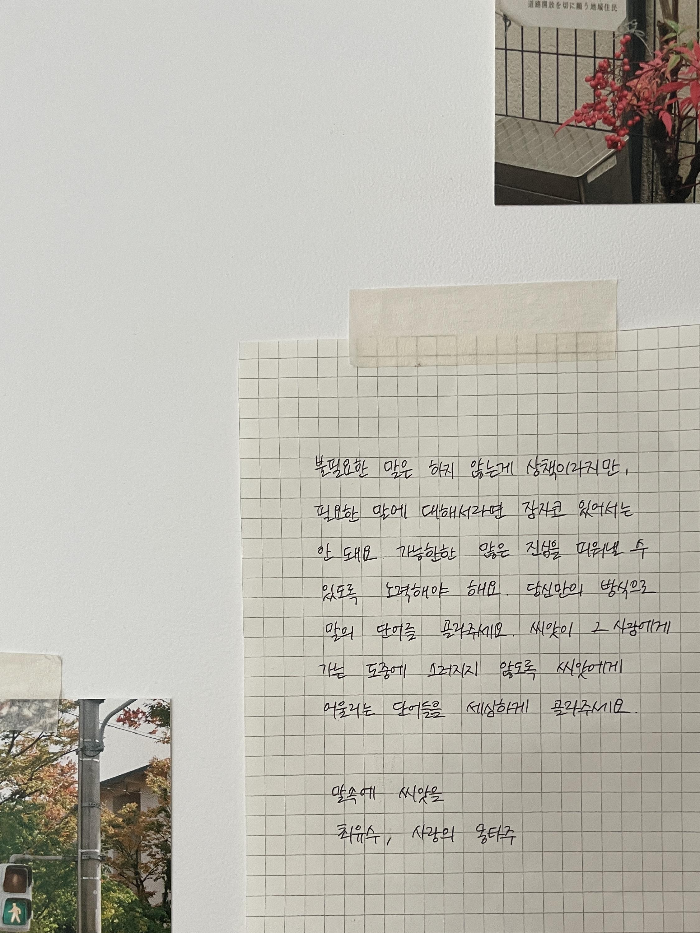 道路開放を切に願う地域住民
불필요한 말은 하지 않는게 상책이라지만,
필요한 말에 대해서라면 잠자코 있어서는
안 돼요. 가능한한 많은 진심을 띄워낼 수
있도록 노력해야 해요. 당신만의 방식으로
말의 단어를 골라주세요. 씨앗이 그 사람에게
가는 도중에 쓰러지지 않도록 씨앗에게
어울리는 단어들을 세심하게 골라주세요.
말속에 씨앗을
최유수, 사랑의 몽타주